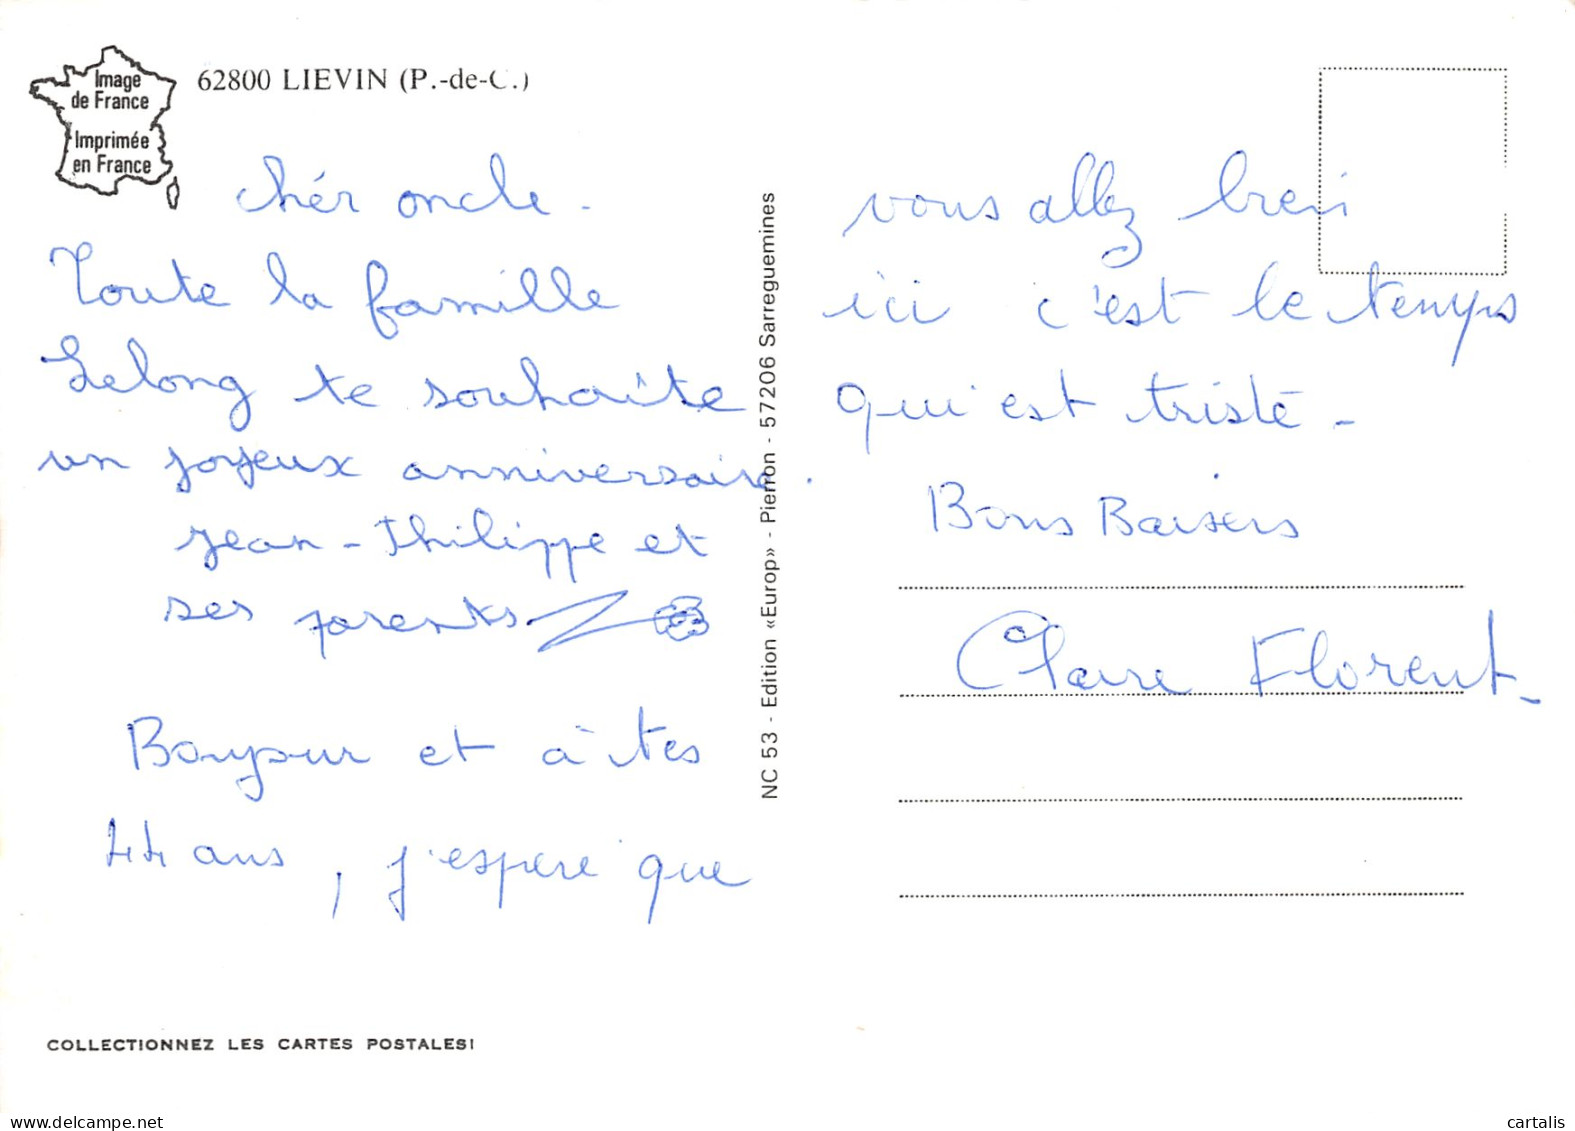 Image
de France
Imprimée
en France
62800 LIEVIN (P.-de-C.)
chér oncle.
Toute la famille
Lelong te souhaite
un joyeux anniversaire.
Jean-Philippe et
ses parents
Bonjour et à tes
44 ans, j'espère que
COLLECTIONNEZ LES CARTES POSTALES!
NC 53 - Edition «Europ» - Pierron - 57206 Sarreguemines
vous allez bien
ici c'est le temps
qui est triste -
Bons Baisers
Claire Florent-
delcampe.net
cartalis